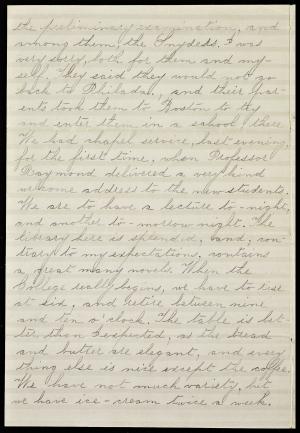 the preliminary examination, and
among them, the Snyders. I was
very sorry, both for them and my-
self. They said they would not go
back to Philada., and their par-
ents took them to Boston to try
and enter them in a school there.
We had chapel service, last evening,
for the first time, when Professor
Raymond delivered a very kind
welcome address to the new students.
We are to have a lecture to-night,
and another to-morrow night. The
library here is splendid, and, con-
trary to my expectations, contains
a great many novels. When the
College really begins, we have to rise
at six, and retire between nine
and ten o'clock. The table is bet-
ter, than I expected, as the bread
and butter are elegant, and every
thing else is nice except the coffee.
We have not much variety, but
we have ice-cream twice a week.